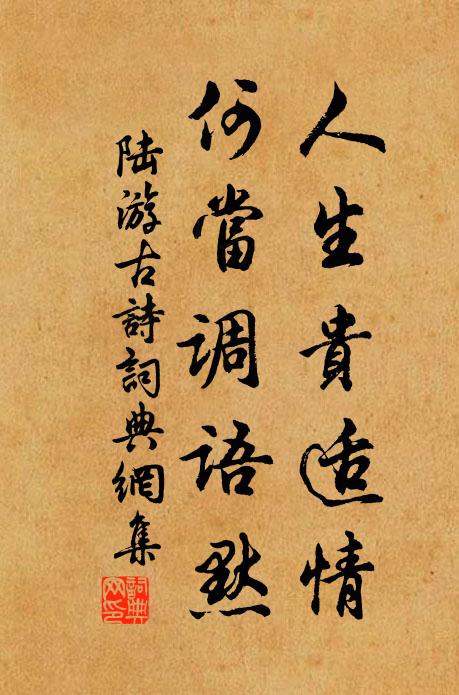 人生貴適情
何當調語默
陆游古詩詞典網集
詞典
网印